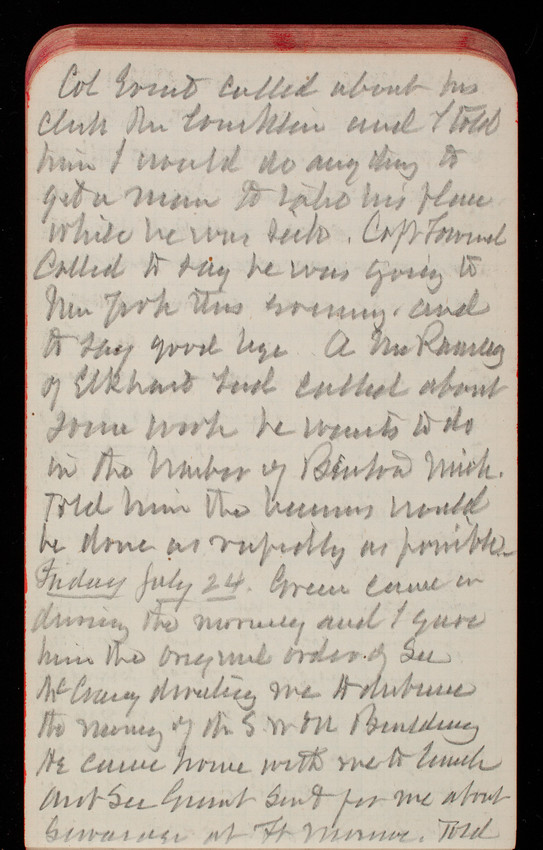 Col Ernst called about his
clerk Mr Conklin and I told
him I would do anything to
get a man to take his place
while he was sick. Capt Townsend
Called to say he was going to
New York this evening and
to say good bye A Mr Ramsey
of Elkhart Ind called about
some work he wants to do
in the harbor of Benton Mich.
Told him the business would
be done as rapidly as possible
Friday July 24. Green came in
during the morning and I gave
him the original order of Sec
McCrary directing me to disburse
the money of the S W & N Building
He came home with me to lunch
Asst Sec Grant sent for me about
Sewerage at Ft Monroe. Told